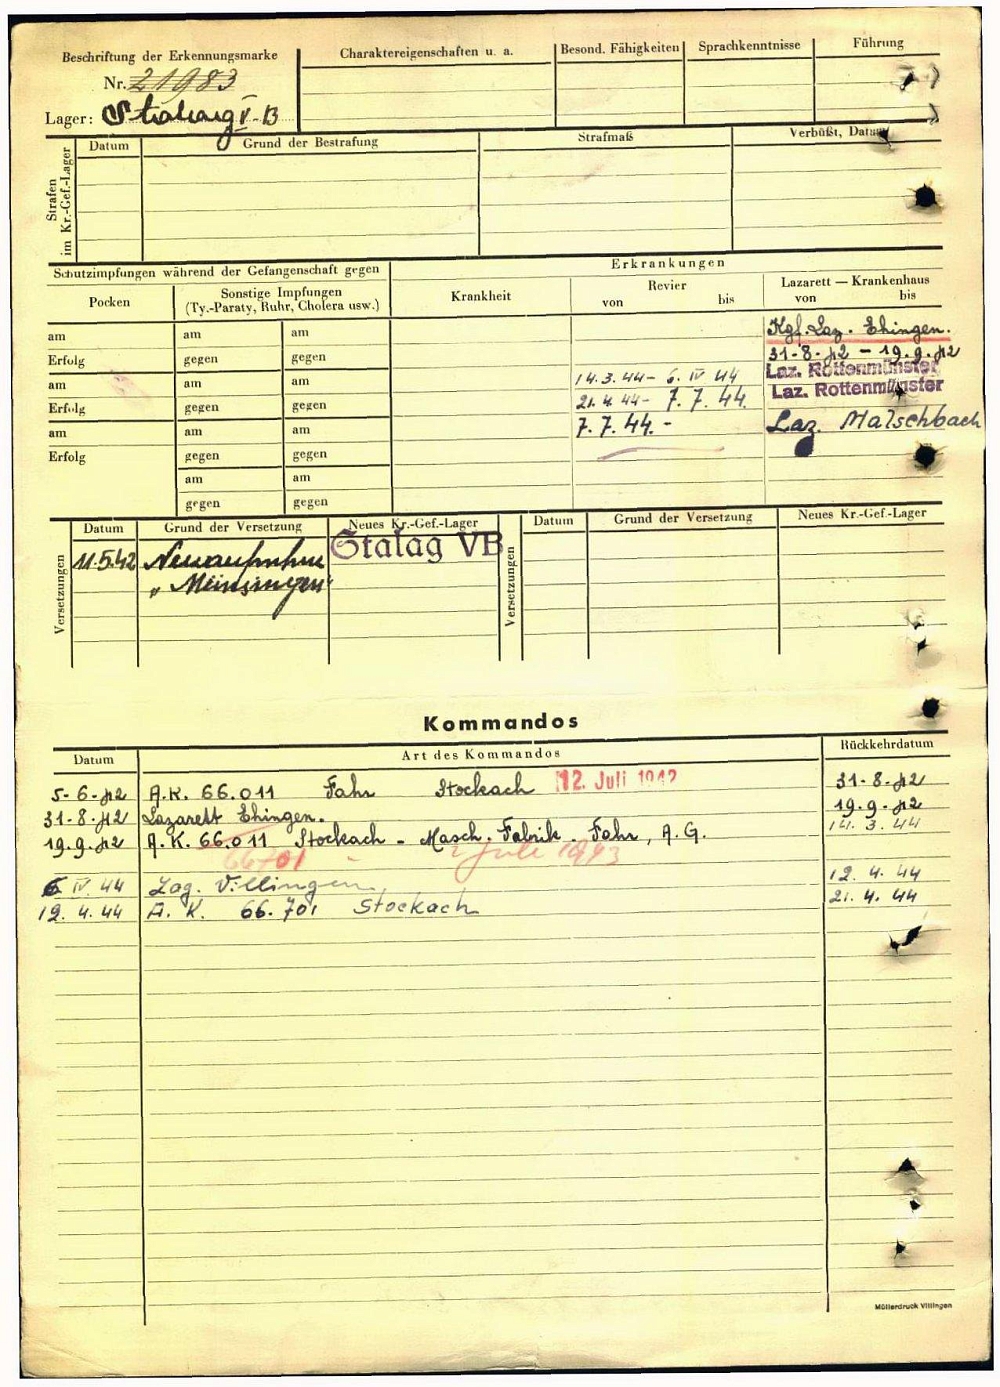 Beschriftung der Erkennungsmarke
Nr. 21983
Lager: Stalag V-B
Charaktereigenschaften u. a.
Besond. Fähigkeiten
Sprachkenntnisse
Führung
Strafen im Kr.-Gef.-Lager
Datum
Grund der Bestrafung
Strafmaß
Verbüßt, Datum
Schutzimpfungen während der Gefangenschaft gegen
Erkrankungen
Pocken
Sonstige Impfungen
(Ty.-Paraty, Ruhr, Cholera usw.)
Krankheit
Revier
von bis
Lazarett — Krankenhaus
von bis
am am am
Kgf. Laz. Ehingen.
Erfolg gegen gegen
31-8-42 - 19.9.42
Laz. Rottenmünster
am am am
14.3.44 - 6. IV 44
Laz. Rottenmünster
Erfolg gegen gegen
21.4.44 - 7.7.44.
am am am
7.7.44. -
Laz. Malschbach
Erfolg gegen gegen
am am
gegen gegen
Versetzungen
Datum Grund der Versetzung Neues Kr.-Gef.-Lager
11.5.42 Neuaufnahme Stalag VB
"Münsingen"
Versetzungen
Datum Grund der Versetzung Neues Kr.-Gef.-Lager
Kommandos
Datum Art des Kommandos Rückkehrdatum
5-6-42 A.K. 66.011 Fahr Stockach 12. Juli 1942 31-8-42
31-8-42 Lazarett Ehingen. 19.9-42
19.9-42 A.K. 66.011 Stockach - Masch. Fabrik Fahr, A.G. 14.3.44
66701 - 2 Juli 1943
6 IV 44 Lag. Villingen 12. 4. 44
12. 4. 44 A. K. 66.701 Stockach 21. 4. 44
Müllerdruck Villingen